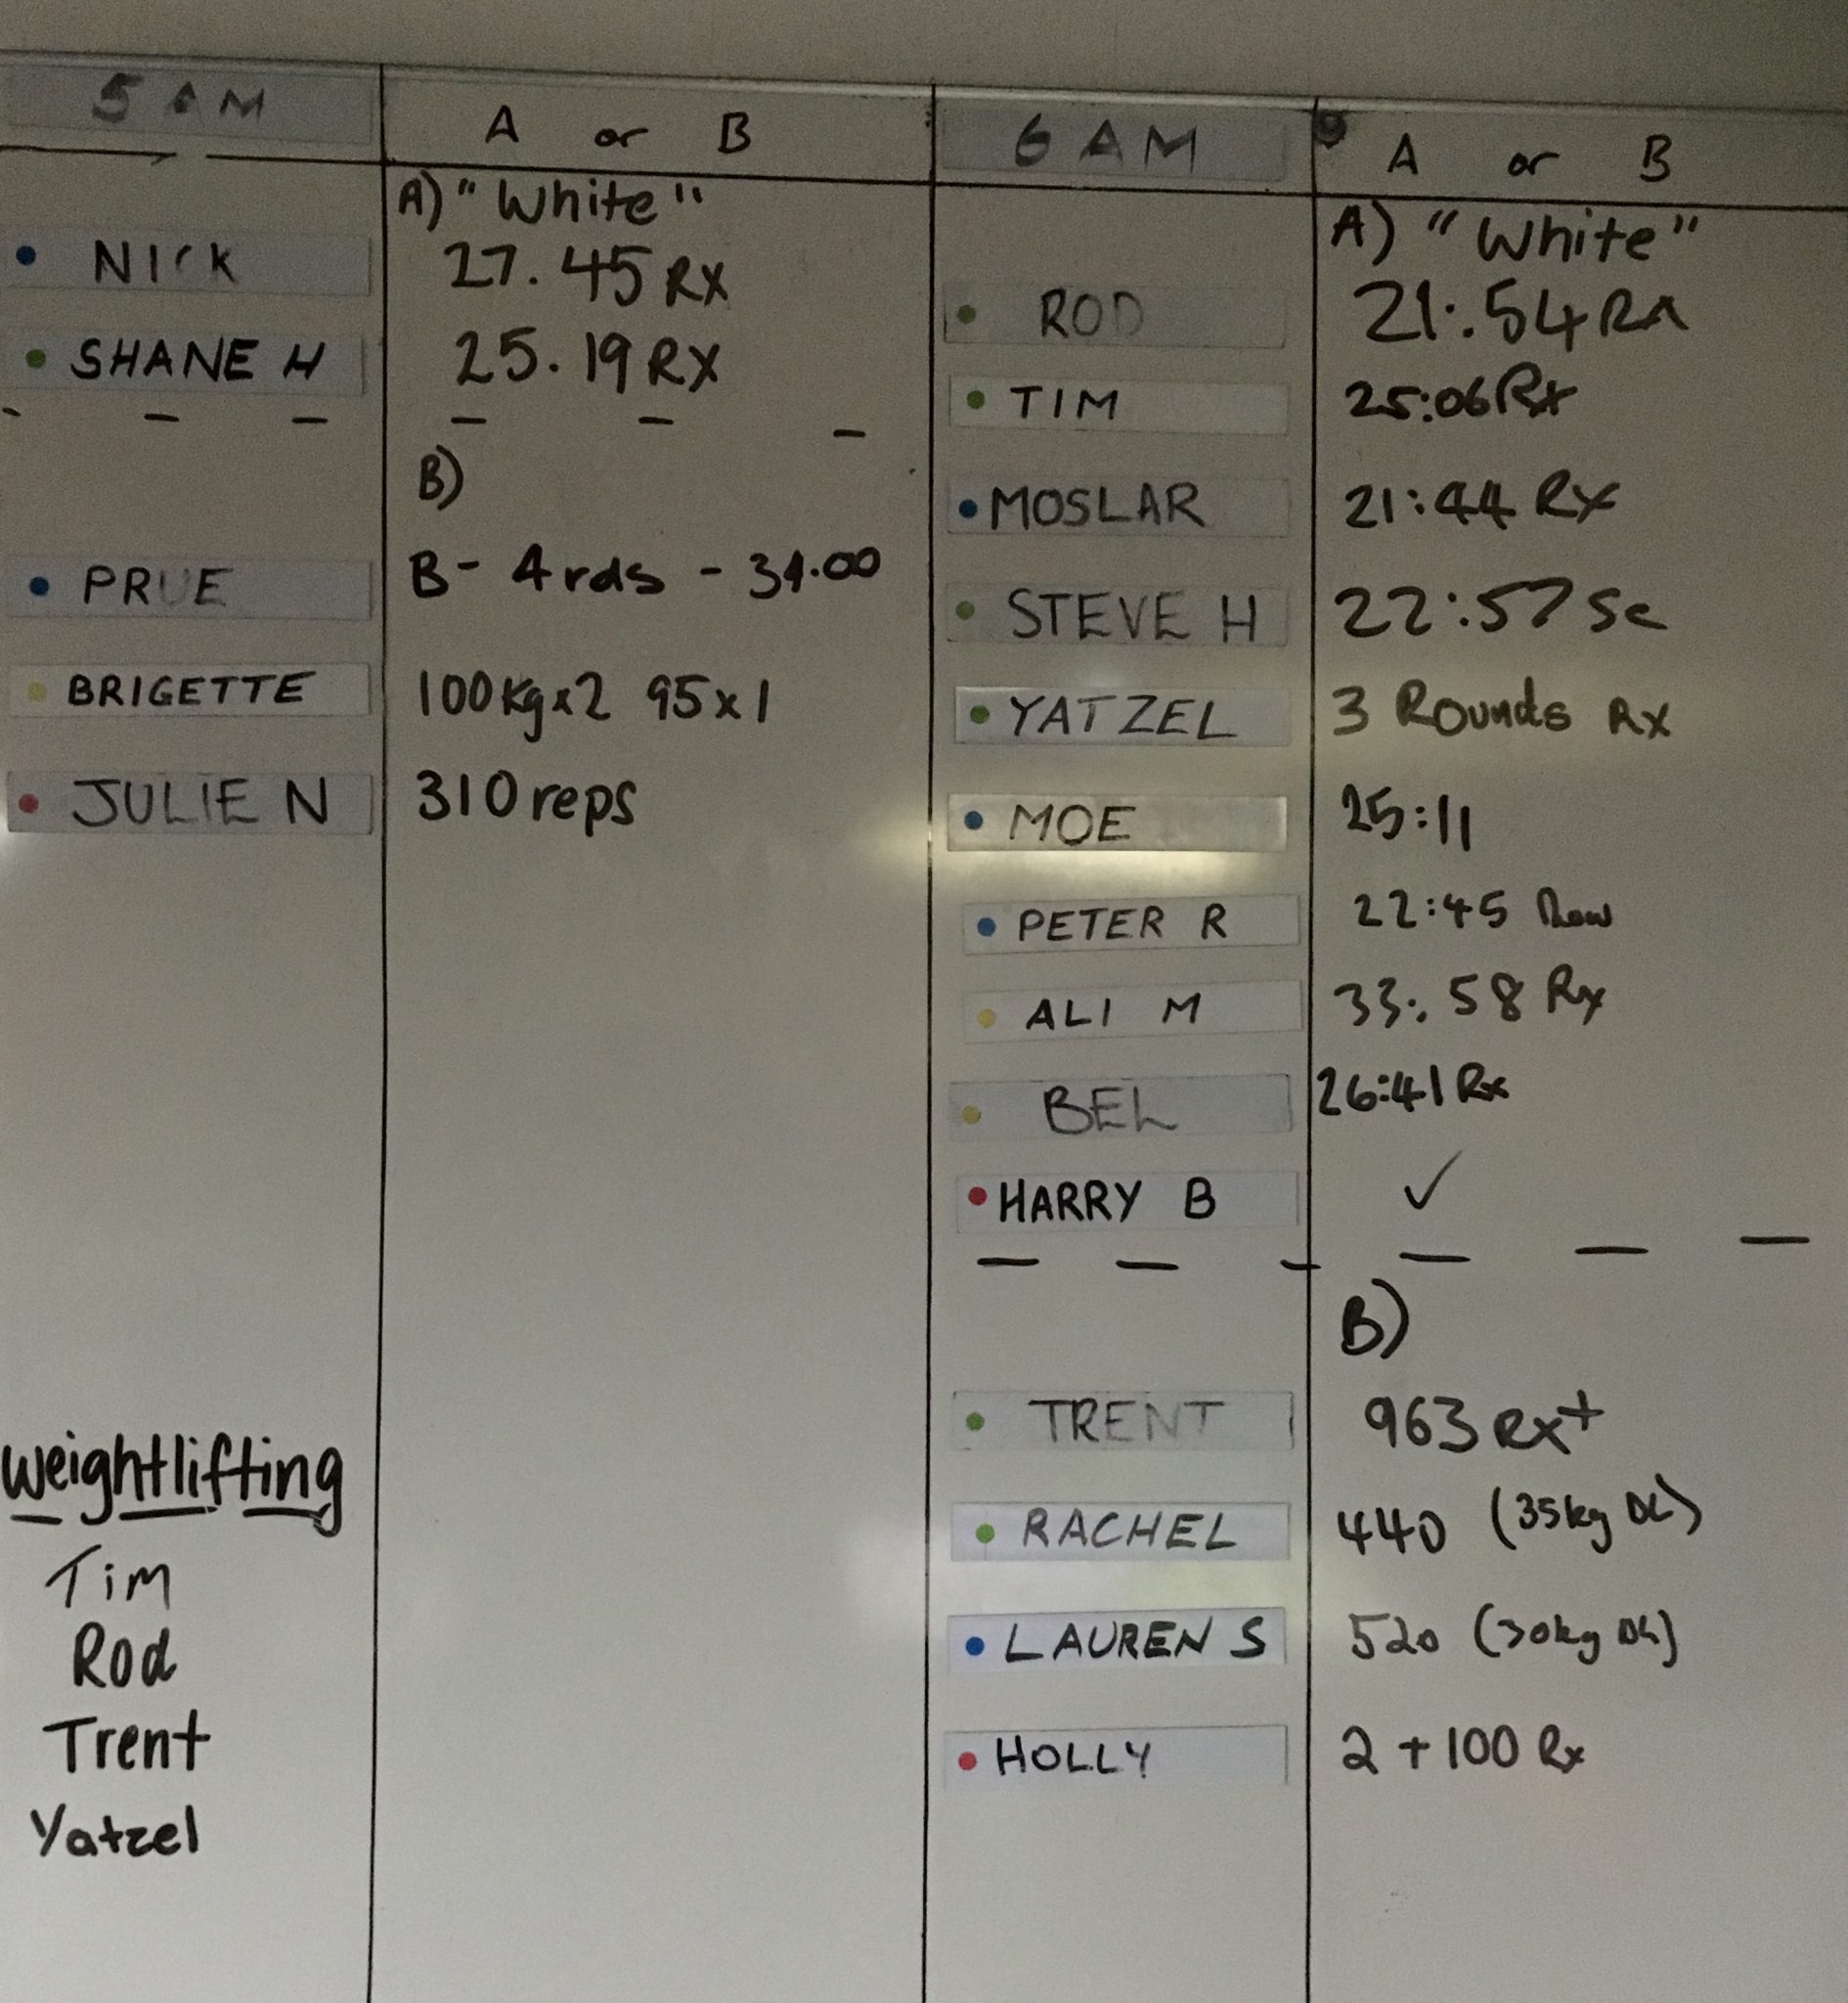 5 AM
A or B
A) "White"
NICK 27.45 RX
SHANE H 25.19 RX
B)
PRUE B- 4 rds - 31.00
BRIGETTE 100kg x 2 95 x 1
JULIE N 310 reps
weightlifting
Tim
Rod
Trent
Yatzel
6 AM
A or B
A) "White"
ROD 21:54 Rx
TIM 25:06 Rx
MOSLAR 21:44 RX
STEVE H 22:57 Sc
YATZEL 3 Rounds Rx
MOE 25:11
PETER R 22:45 Row
ALI M 33:58 Rx
BEL 26:41 Rx
HARRY B ✓
B)
TRENT 963 Rx+
RACHEL 440 (35kg DL)
LAUREN S 520 (30kg DL)
HOLLY 2 + 100 Rx